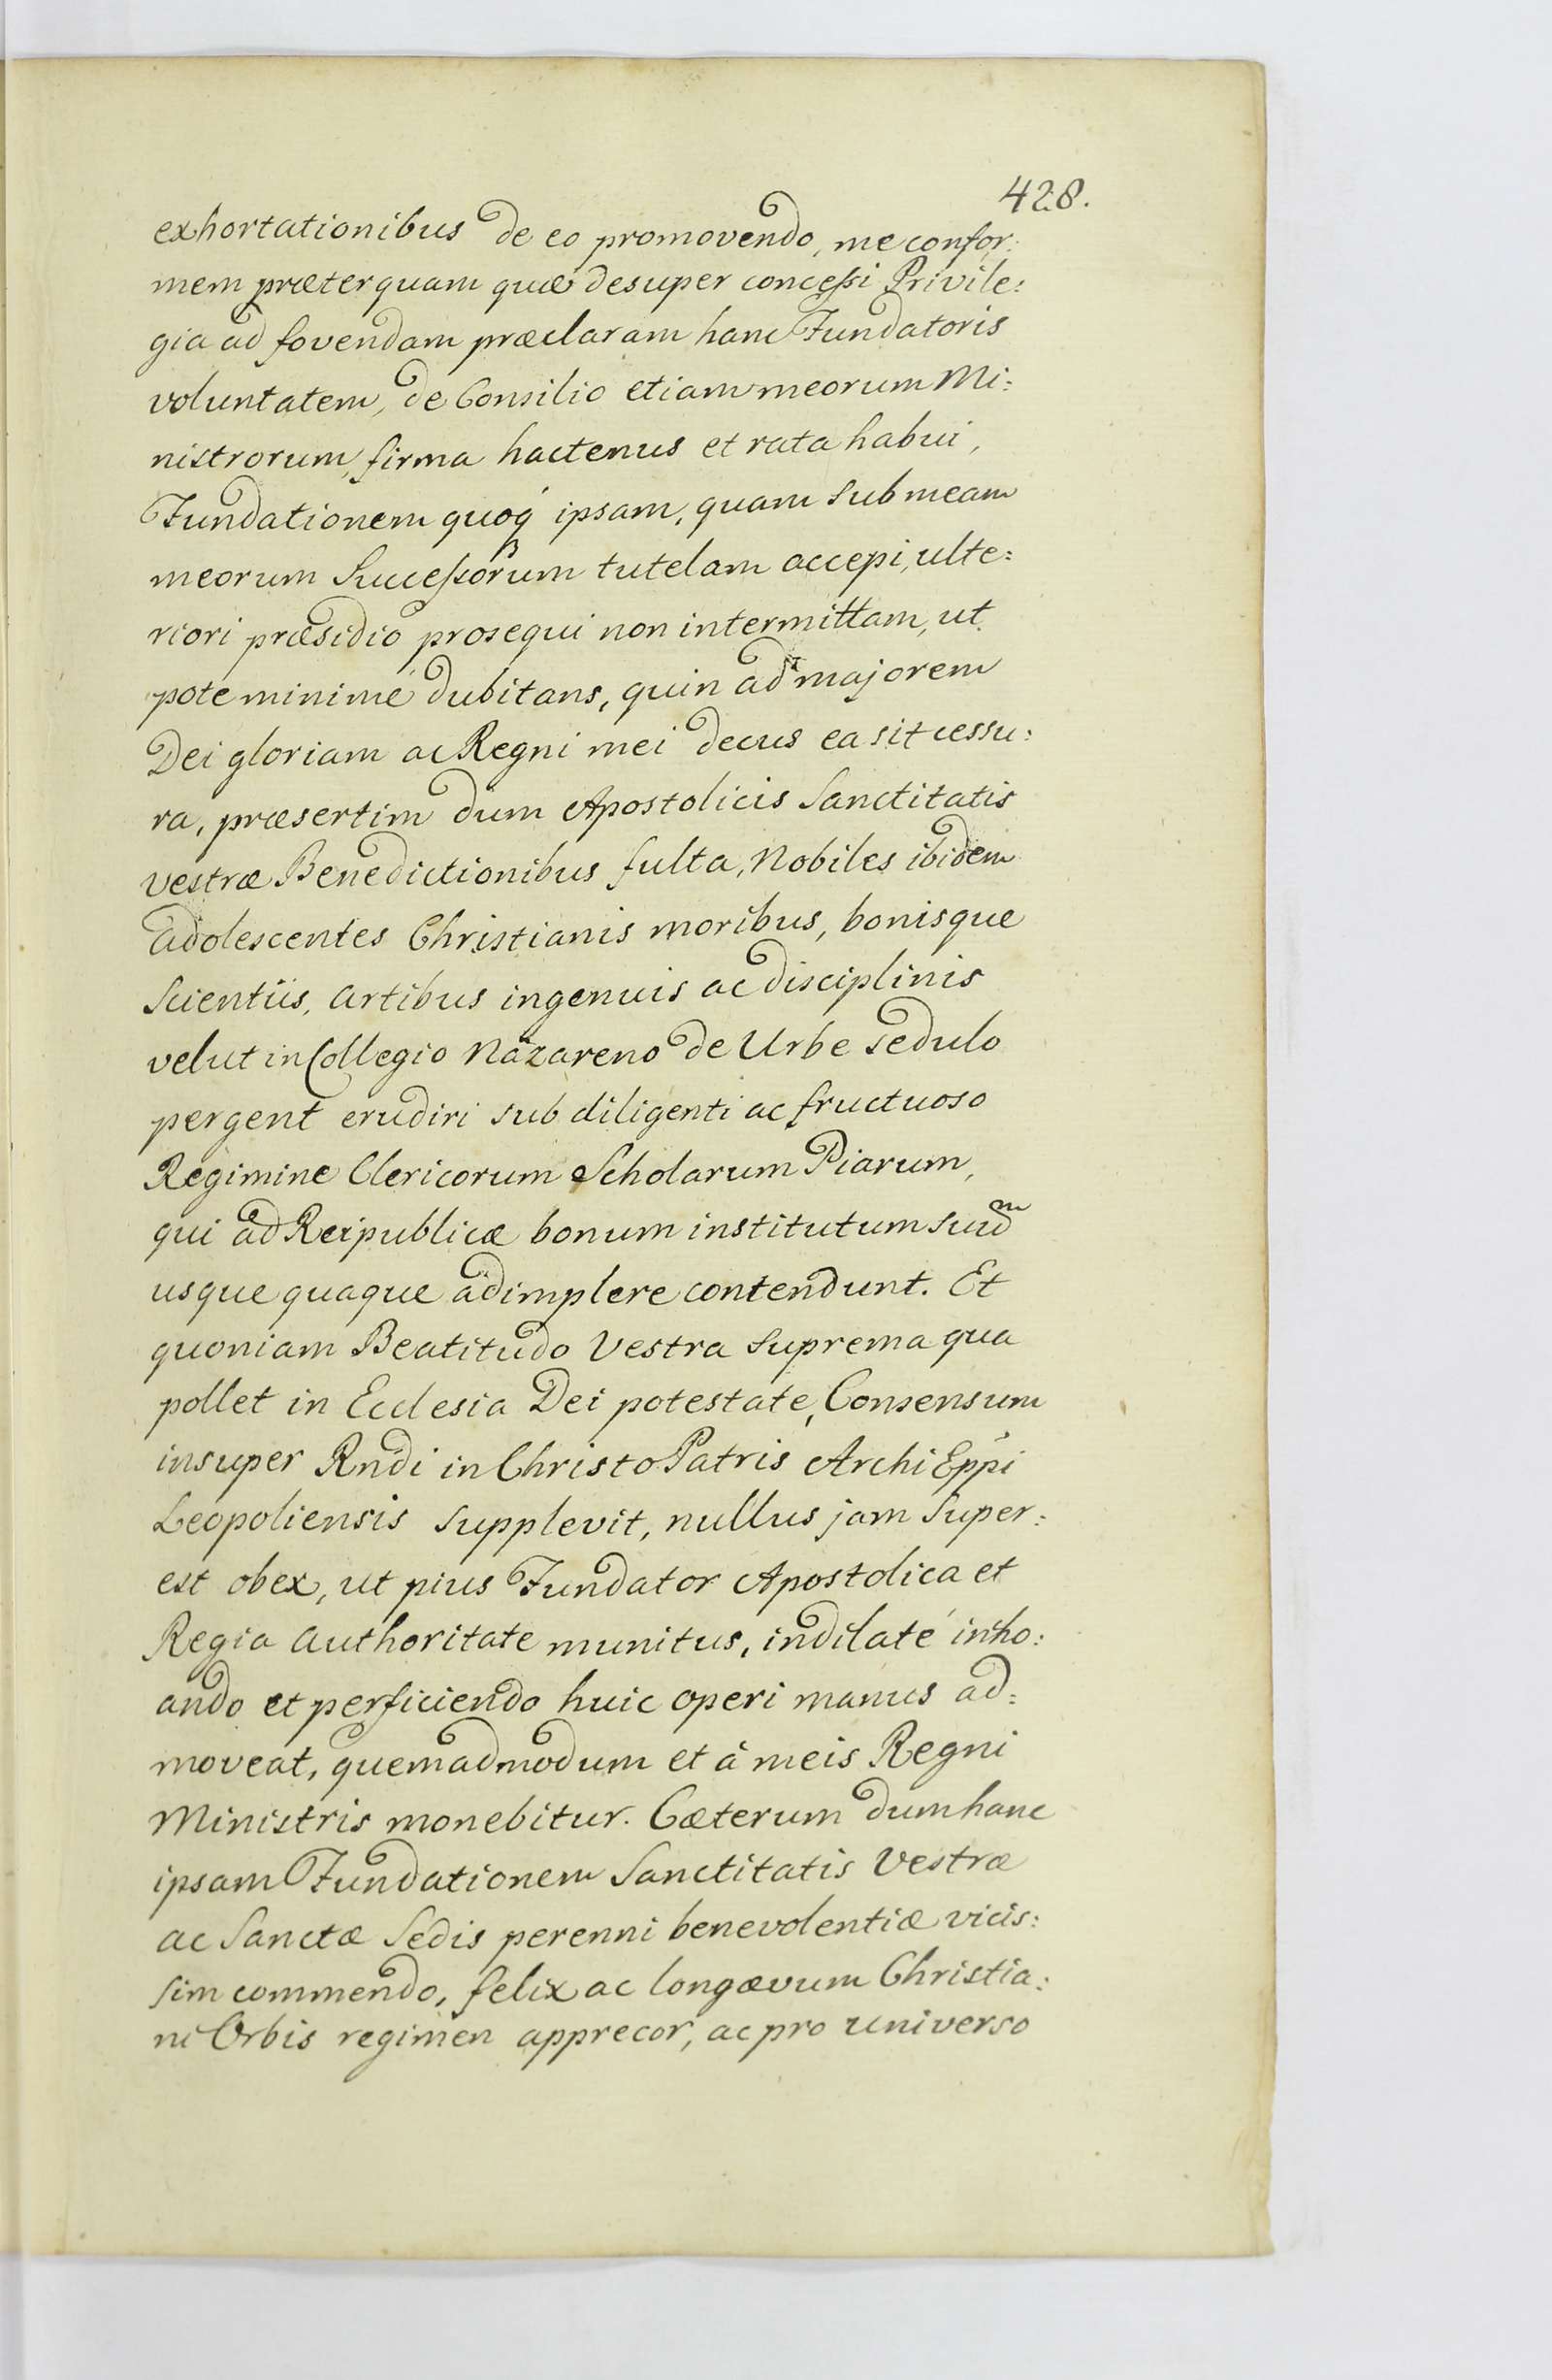 428.
exhortationibus de eo promovendo, me confor:
mem præterquam quæ desuper concessi Privile:
gia ad fovendam præclaram hanc Fundatoris
voluntatem, de Consilio etiam meorum Mi:
nistrorum, firma hactenus et rata habui,
Fundationem quoq́ ipsam, quam sub meam
meorum Successorum tutelam accepi, ulte:
riori præsidio prosequi non intermittam, ut
pote minimé dubitans, quin ad majorem
Dei gloriam ac Regni mei decus ea sit cessu:
ra, præsertim dum Apostolicis Sanctitatis
vestræ Benedictionibus fulta, Nobiles ibidem
adolescentes Christianis moribus, bonisque
Scientiis, artibus ingenuis ac disciplinis
velut in Collegio Nazareno de Urbe sedulo
pergent erudiri sub diligenti ac fructuoso
Regimine Clericorum Scholarum Piarum,
qui ad Reipublicæ bonum institutum suũ
usque quaque adimplere contendunt. Et
quoniam Beatitudo Vestra suprema qua
pollet in Ecclesia Dei potestate, Consensum
insuper Rndi in Christo Patris Archi Eppi
Leopoliensis supplevit, nullus jam super:
est obex, ut pius Fundator Apostolica et
Regia authoritate munitus, indilaté incho:
ando et perficiendo huic operi manus ad:
moveat, quemadmodum et à meis Regni
Ministris monebitur. Cæterum dum hanc
ipsam Fundationem Sanctitatis Vestræ
ac Sanctæ Sedis perenni benevolentiæ vicis:
sim commendo, felix ac longævum Christia:
ni Orbis regimen apprecor, ac pro universo